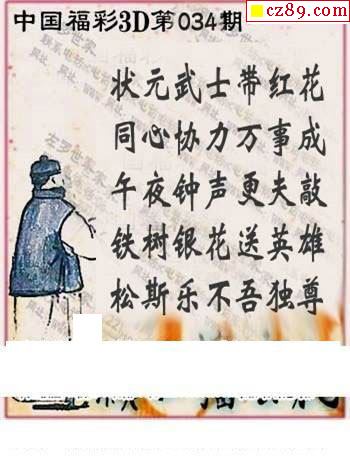 cz89.com
中国福彩3D第034期
状元武士带红花
同心协力万事成
午夜钟声更夫敲
铁树银花送英雄
松斯乐不吾独尊